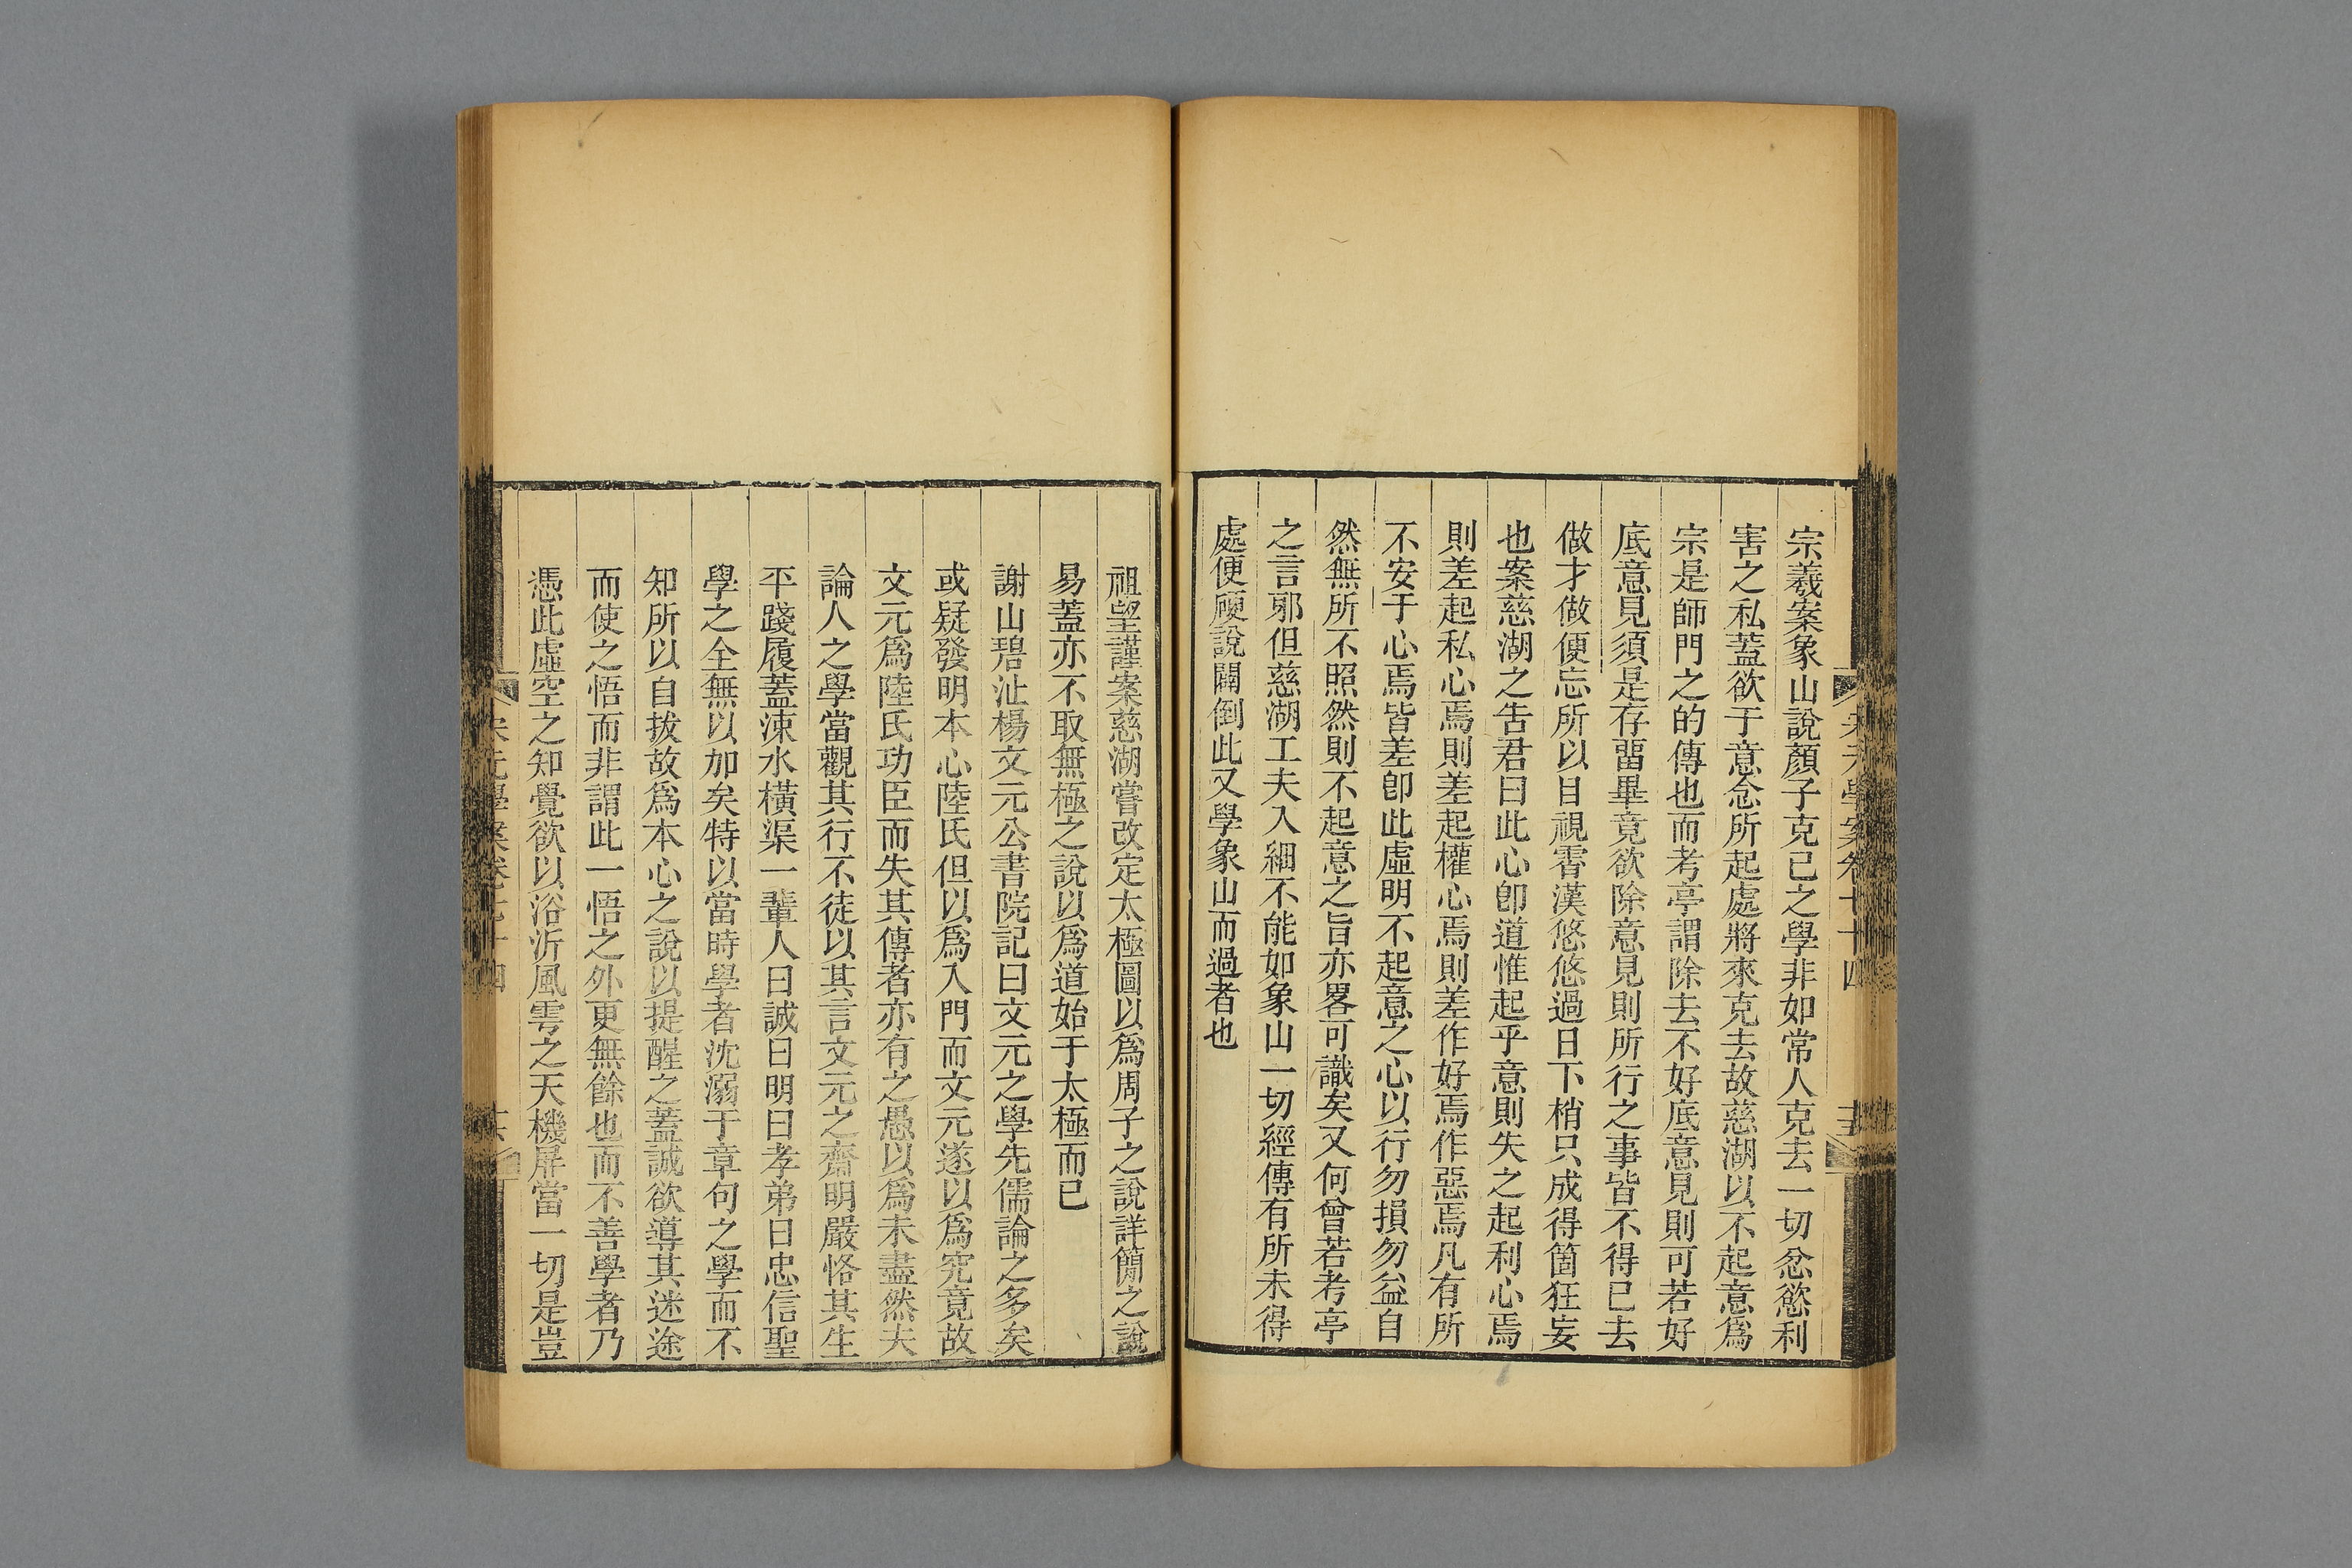 宗羲案象山說顏子克己之學非如常人克去一切忿慾利
害之私蓋欲于意念所起處將來克去故慈湖以不起意爲
宗是師門之的傳也而考亭謂除去不好底意見則可若好
底意見須是存畱畢竟欲除意見則所行之事皆不得已去
做才做便忘所以目視霄漢悠悠過日下梢只成得箇狂妄
也案慈湖之告君曰此心卽道惟起乎意則失之起利心焉
則差起私心焉則差起權心焉則差作好焉作惡焉凡有所
不安于心焉皆差卽此虛明不起意之心以行勿損勿益自
然無所不照然則不起意之旨亦畧可識矣又何曾若考亭
之言邪但慈湖工夫入細不能如象山一切經傳有所未得
處便硬說闢倒此又學象山而過者也
祖望謹案慈湖嘗改定太極圖以爲周子之說詳簡之說
易蓋亦不取無極之說以爲道始于太極而已
謝山碧沚楊文元公書院記曰文元之學先儒論之多矣
或疑發明本心陸氏但以爲入門而文元遂以爲究竟故
文元爲陸氏功臣而失其傳者亦有之愚以爲未盡然夫
論人之學當觀其行不徒以其言文元之齋明嚴恪其生
平踐履蓋涑水橫渠一輩人曰誠曰明曰孝弟曰忠信聖
學之全無以加矣特以當時學者沈溺于章句之學而不
知所以自拔故爲本心之說以提醒之蓋誠欲導其迷途
而使之悟而非謂此一悟之外更無餘也而不善學者乃
憑此虛空之知覺欲以浴沂風雩之天機屏當一切是豈